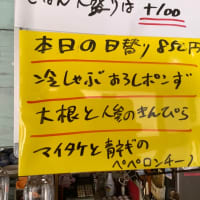 ごはん大盛りは +100
本日の日替り 850円
冷しゃぶおろしポンず
大根と人参のきんぴら
マイタケと青ネギの
ペペロンチーノ